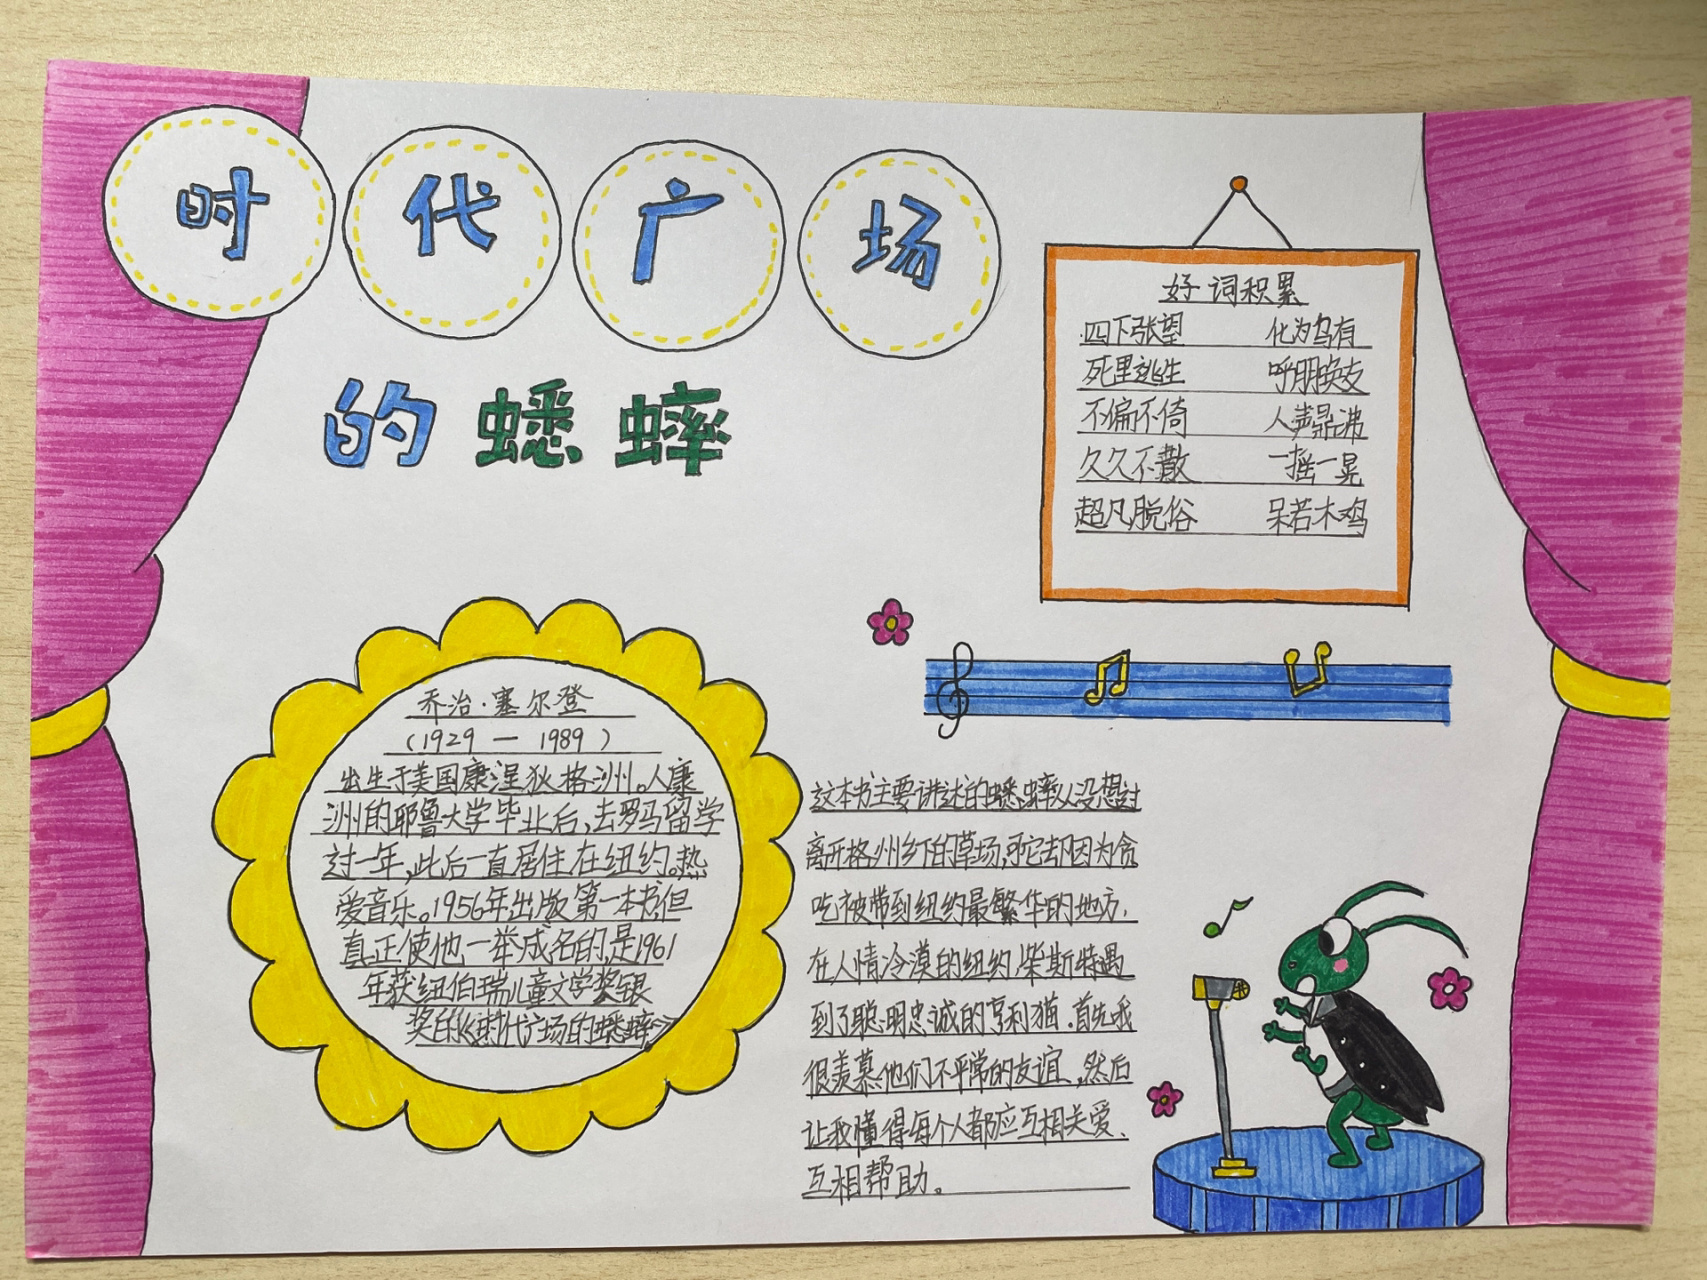 时代广场
的蟋蟀
好词积累
四下张望 化为乌有
死里逃生 呼朋唤友
不偏不倚 人声鼎沸
久久不散 一摇一晃
超凡脱俗 呆若木鸡
乔治·塞尔登
(1929 — 1989)
出生于美国康涅狄格洲。人康
洲的耶鲁大学毕业后,去罗马留学
过一年,此后一直居住在纽约。热
爱音乐。1956年出版第一本书,但
真正使他一举成名的,是1961
年获纽伯瑞儿童文学奖银
奖的《时代广场的蟋蟀》
这本书主要讲述的蟋蟀从没想过
离开格州乡下的草场,可它却因为贪
吃被带到纽约最繁华的地方,
在人情冷漠的纽约,柴斯特遇
到了聪明忠诚的亨利猫.首先我
很羡慕他们不平常的友谊,然后
让我懂得每个人都应互相关爱、
互相帮助。